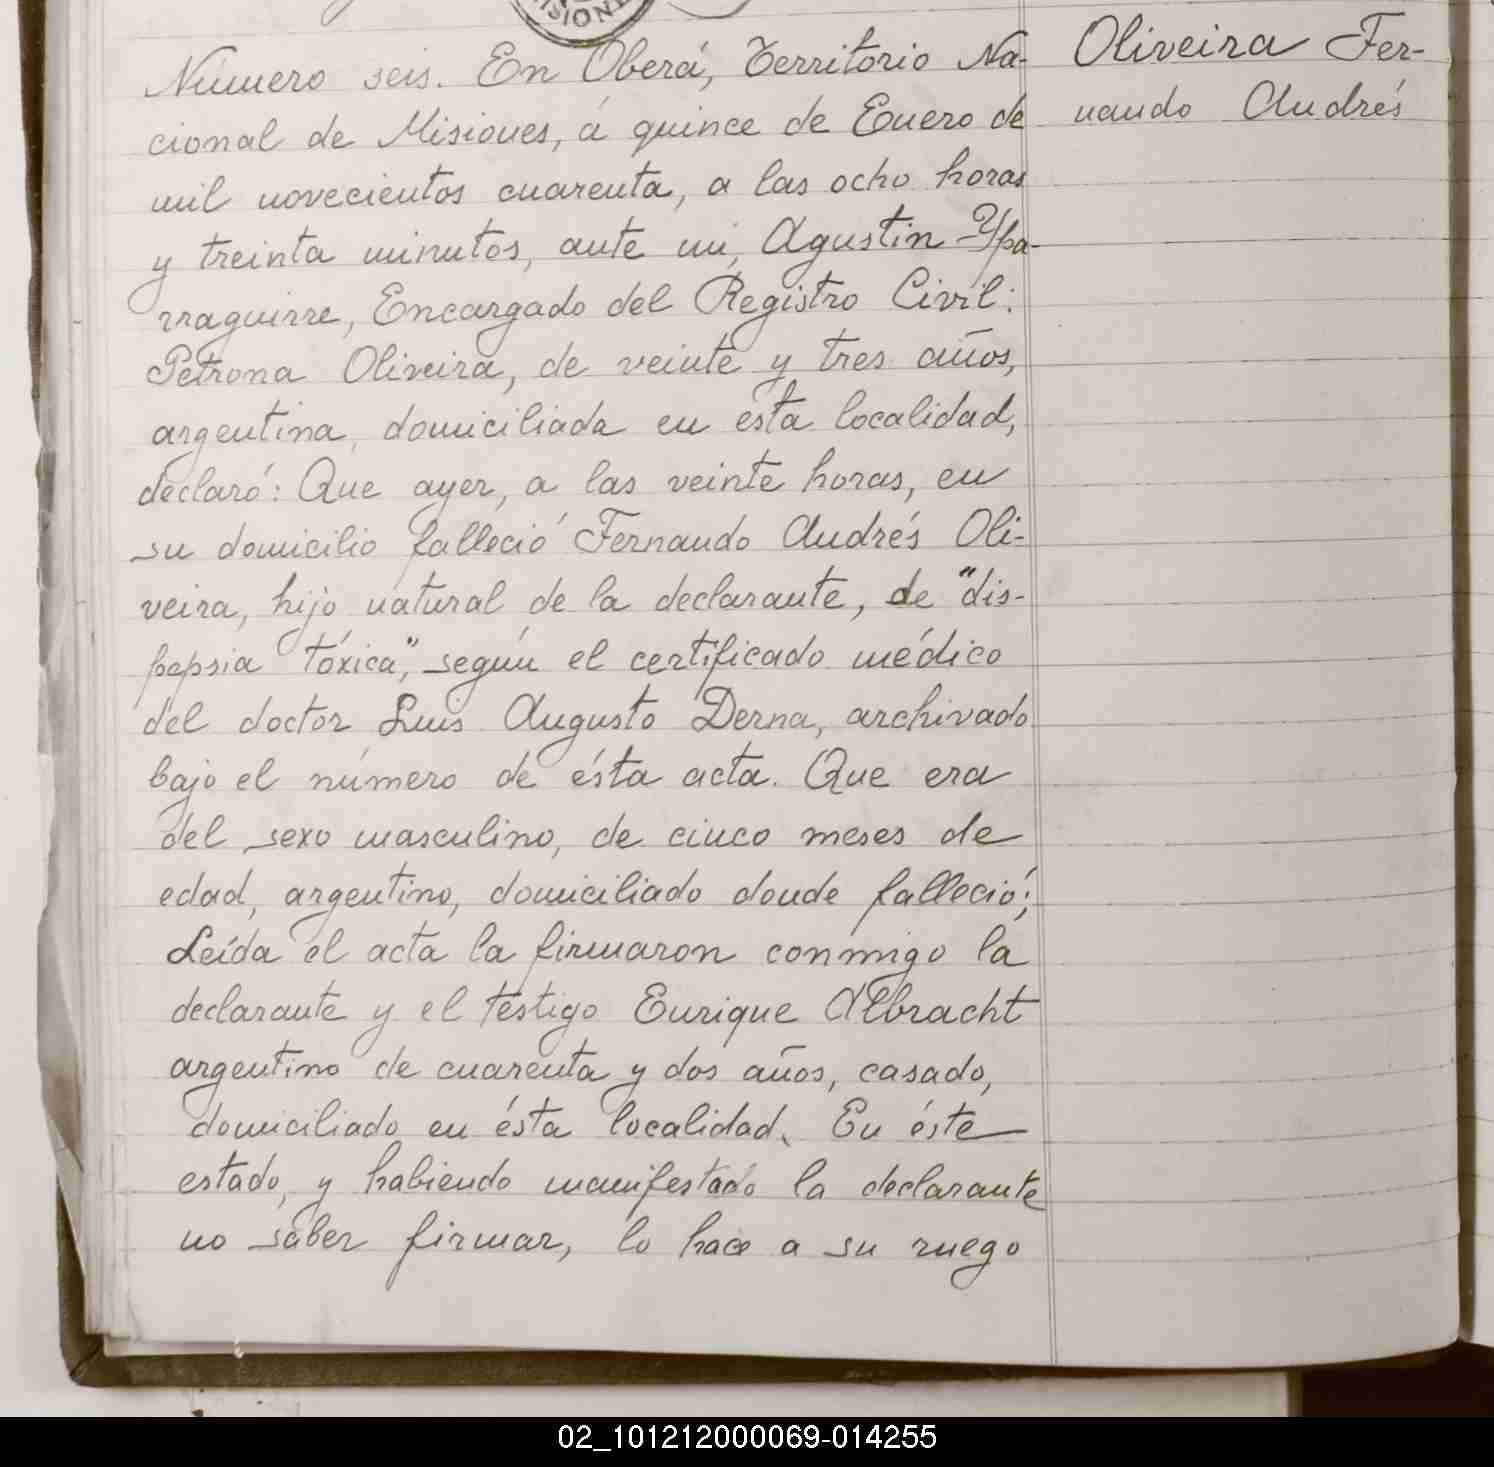 Número seis. En Oberá, Territorio Na-
cional de Misiones, á quince de Enero de
mil novecientos cuarenta, a las ocho horas
y treinta minutos, ante mi, Agustin Ypa-
rraguirre, Encargado del Registro Civil:
Petrona Oliveira, de veinte y tres años,
argentina, domiciliada en esta localidad,
declaró: Que ayer, a las veinte horas, en
su domicilio falleció Fernando Andrés Oli-
veira, hijo natural de la declarante, de "dis-
pepsia tóxica", según el certificado médico
del doctor Luis Augusto Derna, archivado
bajo el número de ésta acta. Que era
del sexo masculino, de cinco meses de
edad, argentino, domiciliado donde falleció;
Leída el acta la firmaron conmigo la
declarante y el testigo Enrique Albracht
argentino de cuarenta y dos años, casado,
domiciliado en ésta localidad. En éste
estado, y habiendo manifestado la declarante
no saber firmar, lo hace a su ruego
Oliveira Fer-
nando Andrés
02_101212000069-014255